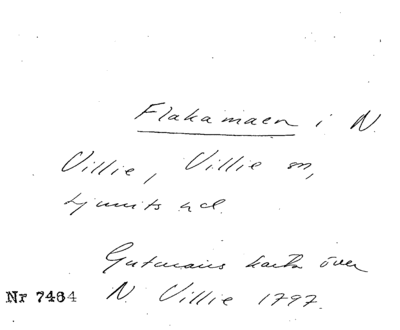 Flakamaen i N.
Villie, Villie sn,
Ljunits hd.
Gutmans karta över
Nr 7464 N. Villie 1797.